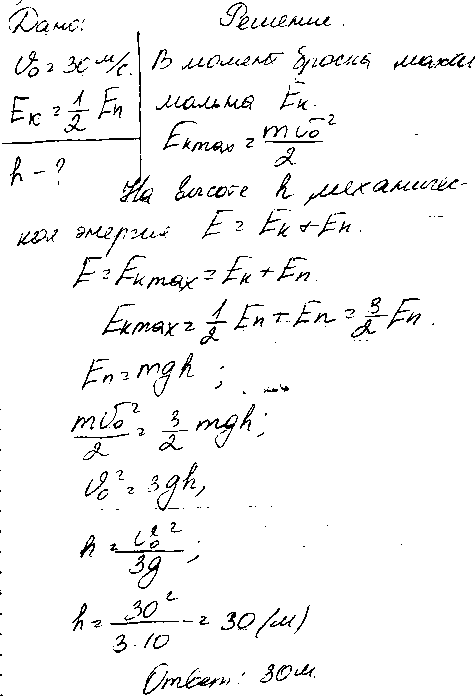 Дано:
Решение.
υ₀ = 30 м/с.
Eк = 1/2 Eп
h – ?
В момент броска макси
мальна Eк.
Eкmax = mυ₀²/2
На высоте h механичес-
кая энергия E = Eк + Eп.
E = Eкmax = Eк + Eп.
Eкmax = 1/2 Eп + Eп = 3/2 Eп.
Eп = mgh ;
mυ₀²/2 = 3/2 mgh;
υ₀² = 3gh,
h = υ₀²/3g ;
h = 30²/3·10 = 30 (м)
Ответ: 30м.